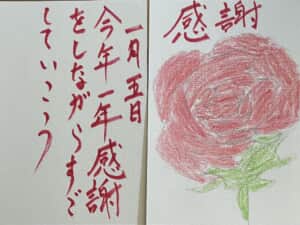 一月五日
今年一年感謝
をしながらすご
していこう
感謝